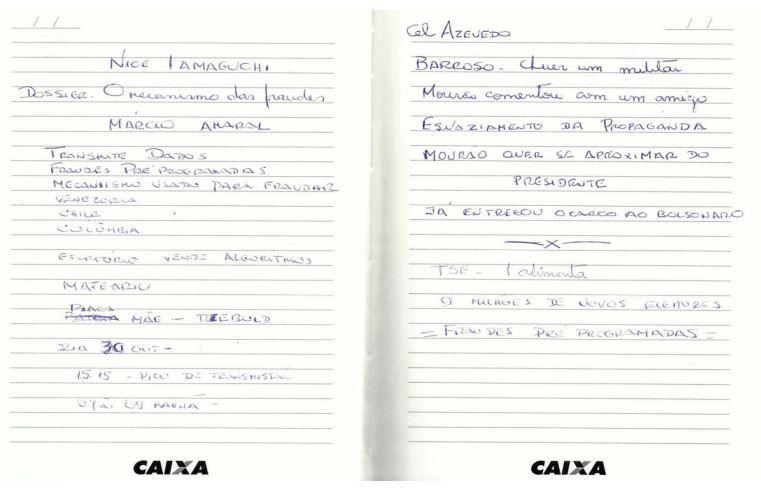 / /
NICE IAMAGUCHI
DOSSIER. O mecanismo das fraudes
MÁRCIO AMARAL
TRANSMITE DADOS
FRAUDES PRÉ PROGRAMADAS
MECANISMO USADO PARA FRAUDAR
VENEZUELA
CHILE
COLÔMBIA
ESCRITÓRIO VENDE ALGORÍTMOS
PLACA
MÃE - DIEBOLD
DIA 30 OUT -
15.15 - PICO DE TRANSMISSÃO
MANHÃ -
CAIXA
/ /
Cel AZEVEDO
BARROSO. Quer um militar
Mourão comentou com um amigo
ESVAZIAMENTO DA PROPAGANDA
MOURÃO QUER SE APROXIMAR DO
PRESIDENTE
JÁ ENTREGOU O CARGO AO BOLSONARO
X
TSE - alimenta
9 MILHÕES DE NOVOS ELEITORES
= FRAUDES PRÉ PROGRAMADAS =
CAIXA